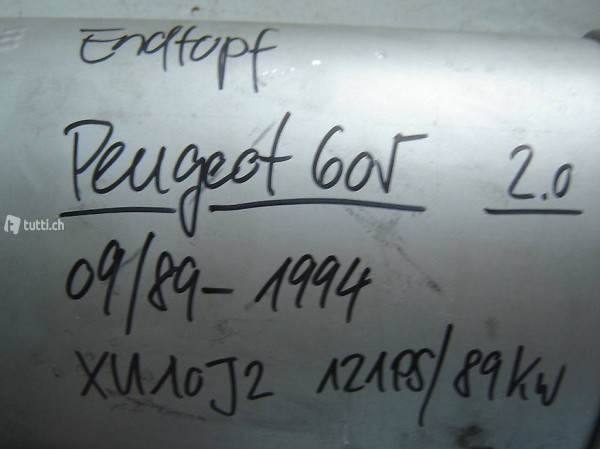 Endtopf
Peugeot 605 2.0
tutti.ch
09/89 - 1994
XU10J2 121PS/89KW